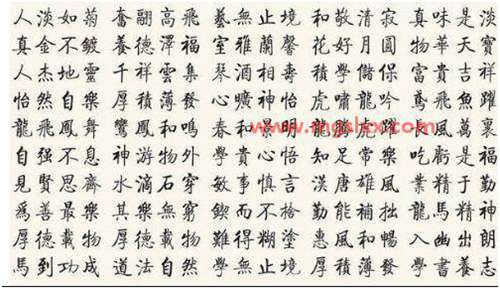 人淡如菊 奮翩高飛 藝無止境 和敬清寂 真味是淡
真金不鍍 養德澤福 室雅蘭馨 花好月圓 物華天寶
人杰地靈 千祥雲集 琴酒相壽 積學儲 富貴吉祥
怡然自樂 厚積薄發 心曠神怡 虎嘯龍吟 鳶飛魚躍
龍飛鳳舞 鸞鳳和鳴 春和景明
自强不息 神游物外 學貴心悟 知足常樂 吃虧是福
見賢思齊 水滴石穿 敏事慎言 漢唐雄風 業精于勤
爲善最樂 其樂無窮 鍥而不捨 勤能補拙 龍馬精神
厚德載物 厚德載物 難得糊塗 惠風和暢 入幽出朗
馬到功成 道法自然 學無止境 厚積薄發 學書養志